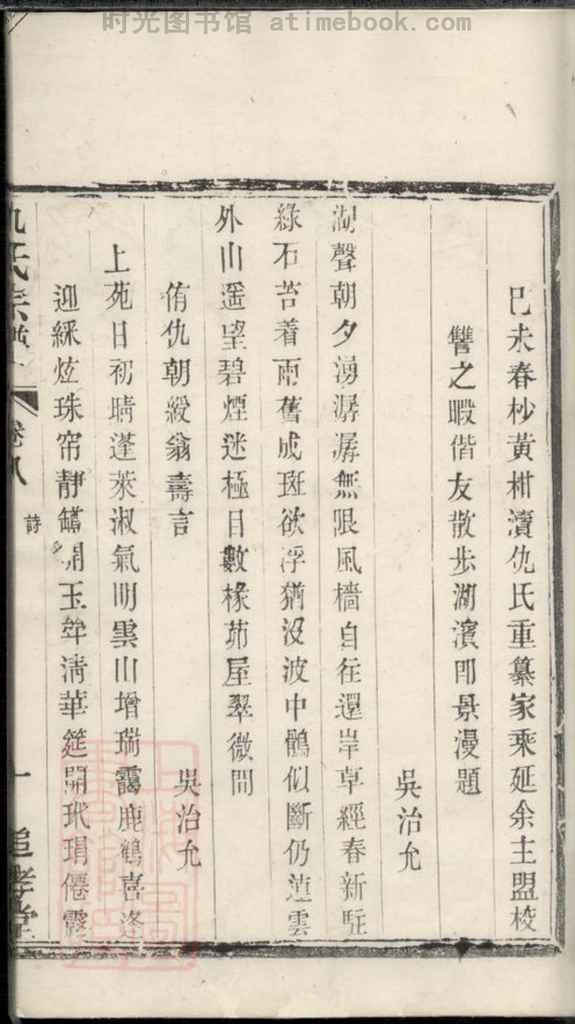 时光图书馆 atimebook.com
巳未春杪黄柑瀆仇氏重纂家乘延余主盟校
讐之暇偕友散步湖濱即景漫題
吳治允
湖聲朝夕湧潺潺無限風檣自往還岸草經春新
綠石苔着雨舊成斑欲浮猶沒波中鶻似斷仍連雲
外山遥望碧煙迷極目數椽茆屋翠微間
侑仇朝綬翁壽言
吳治允
上苑日初晴蓬萊淑氣明雲山增瑞靄鹿鶴喜逢
迎綵炫珠帘靜開玉斝清華筵開玳瑁僊
仇氏宗譜
卷八
詩
一
追孝堂